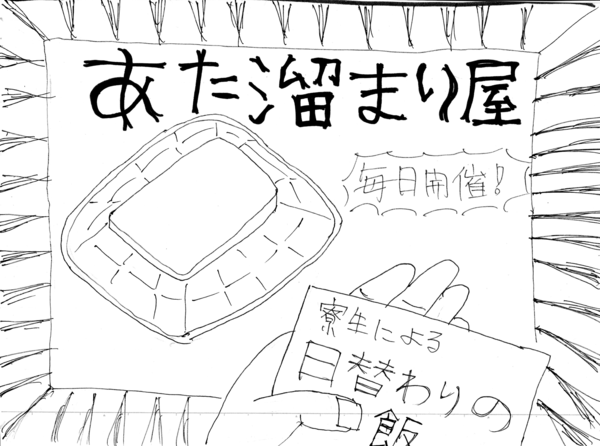 あた溜まり屋
毎日開催!
寮生による
日替わりの
飯